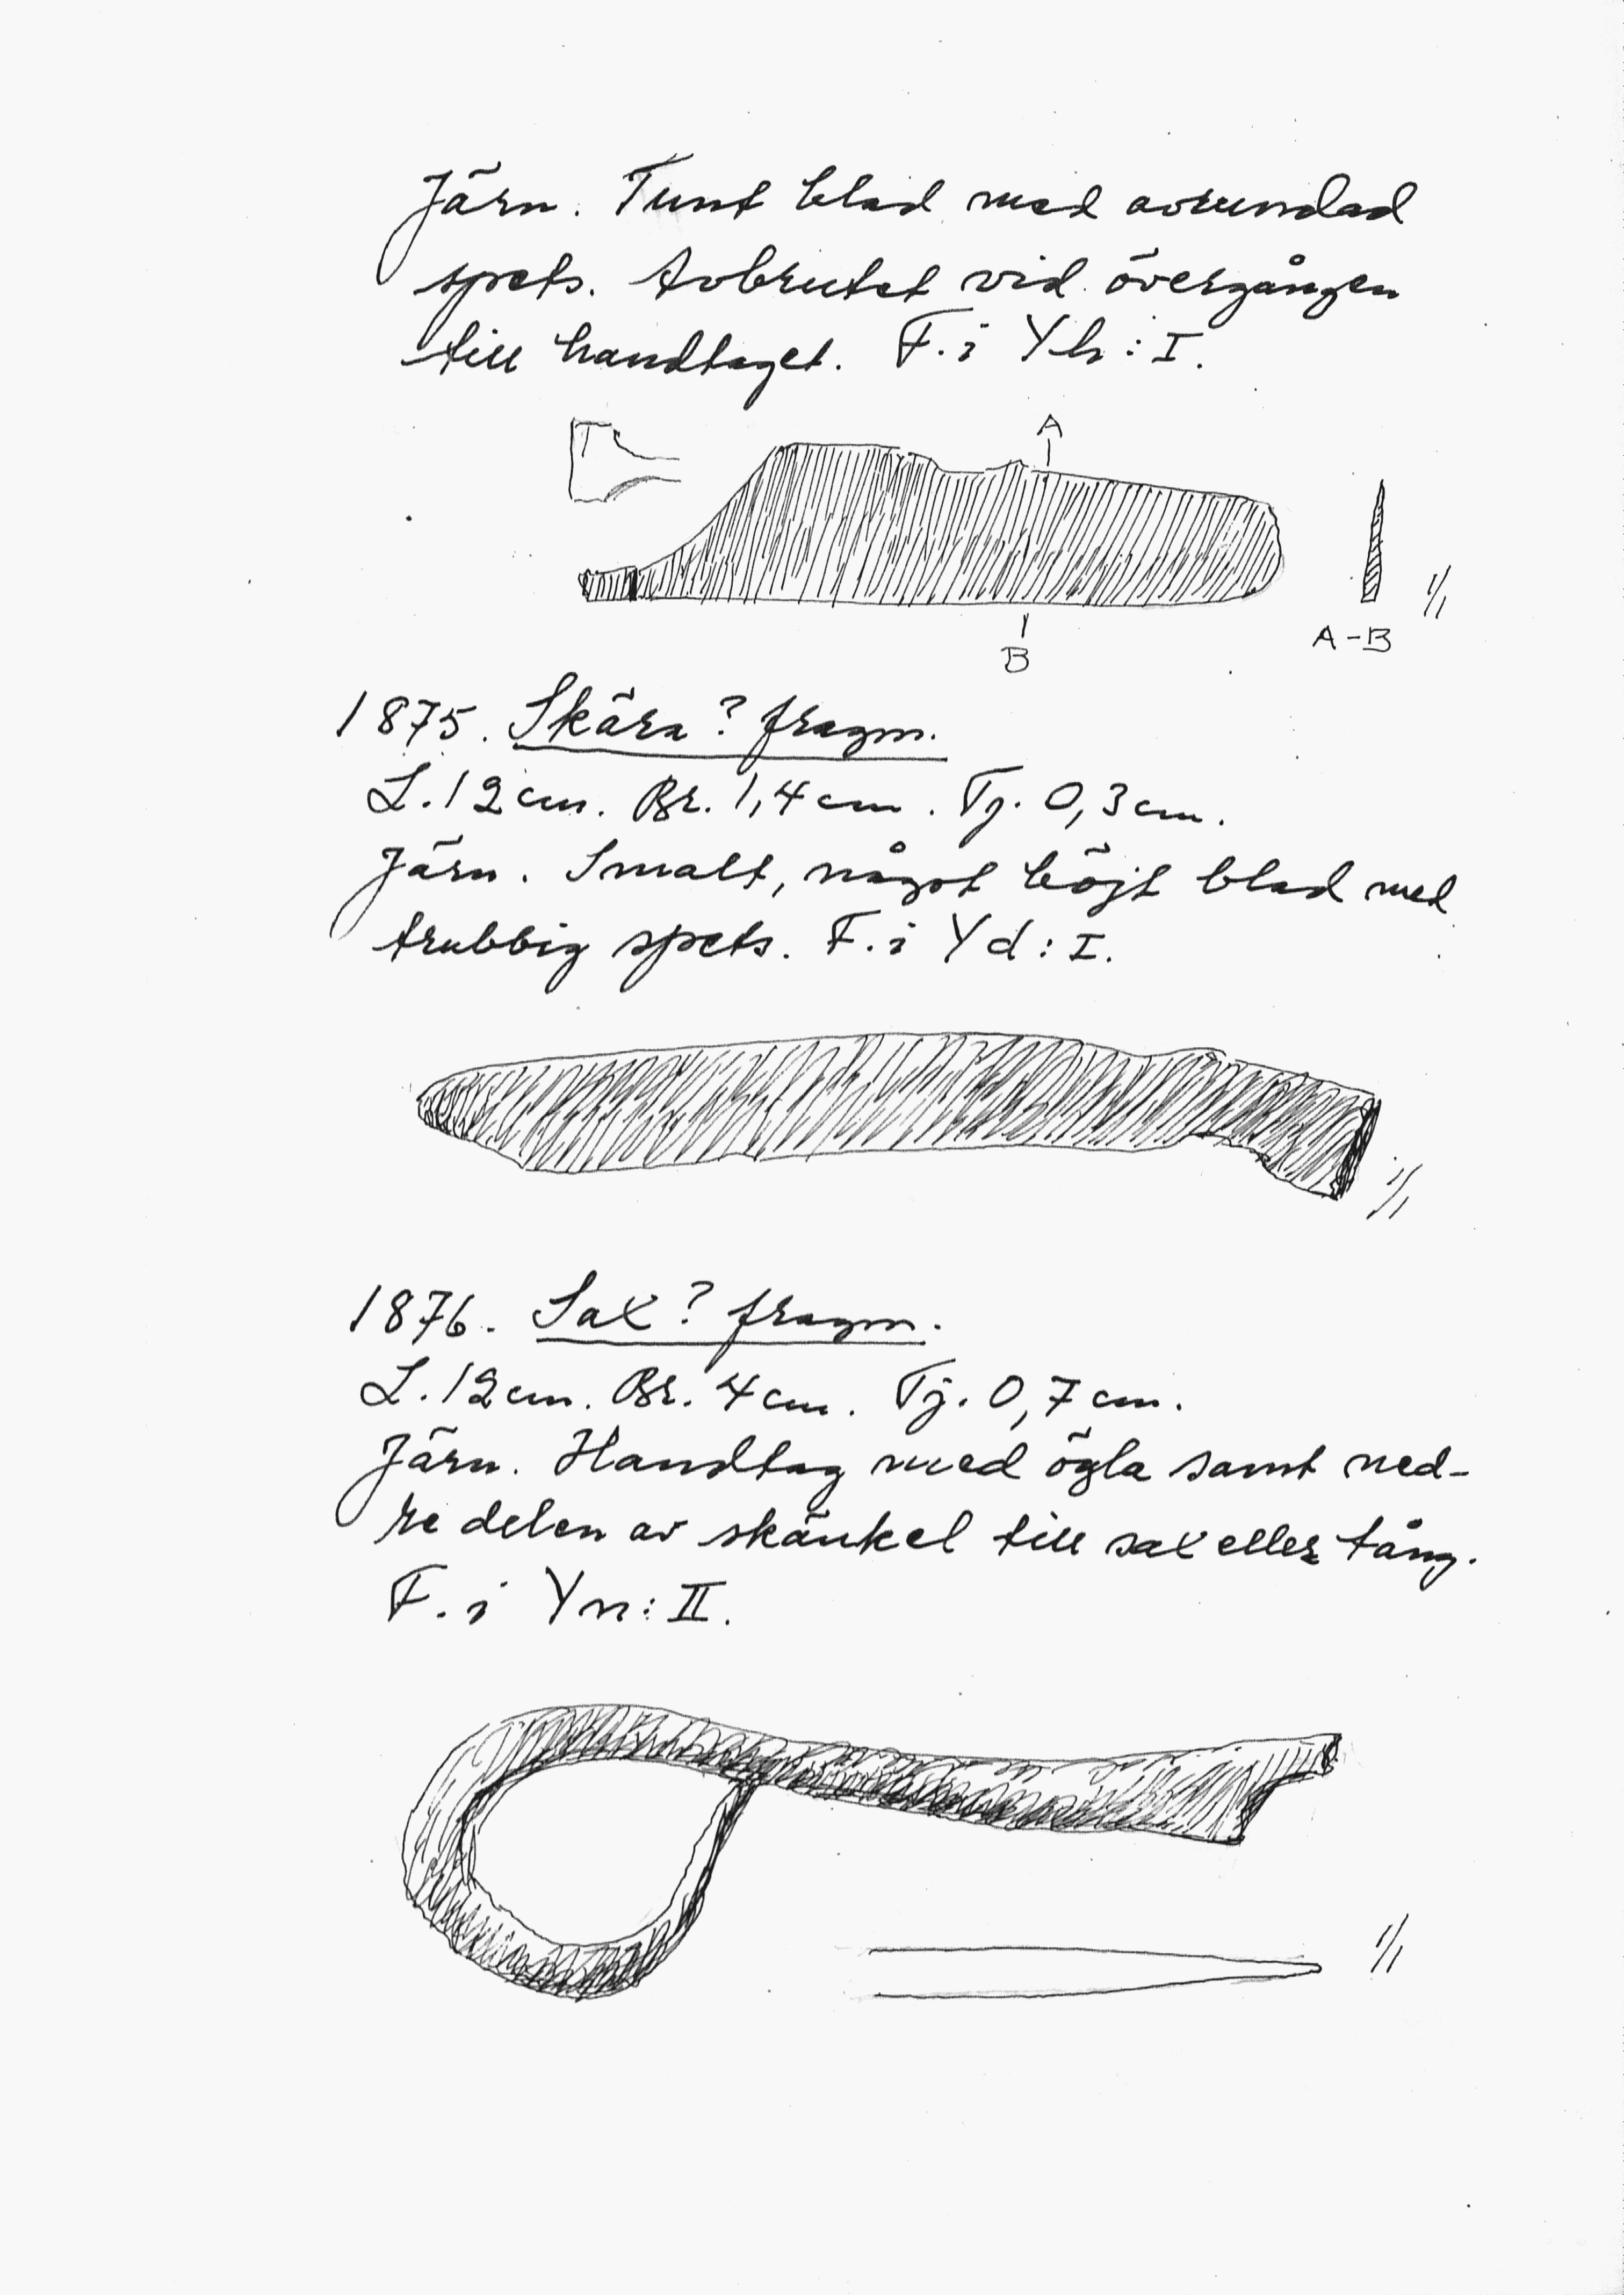 Järn. Tunt blad med avrundad
spets. Avbrutet vid övergången
till handtaget. F. i Yh: I.
A
B
A-B
1/1
1875. Skära? fragm.
L. 12 cm. Br. 1,4 cm. Tj. 0,3 cm.
Järn. Smalt, något böjt blad med
trubbig spets. F. i Yd: I.
1/1
1876. Sax? fragm.
L. 12 cm. Br. 4 cm. Tj. 0,7 cm.
Järn. Handtag med ögla samt ned-
re delen av skänkel till sax eller tång.
F. i Yn: II.
1/1